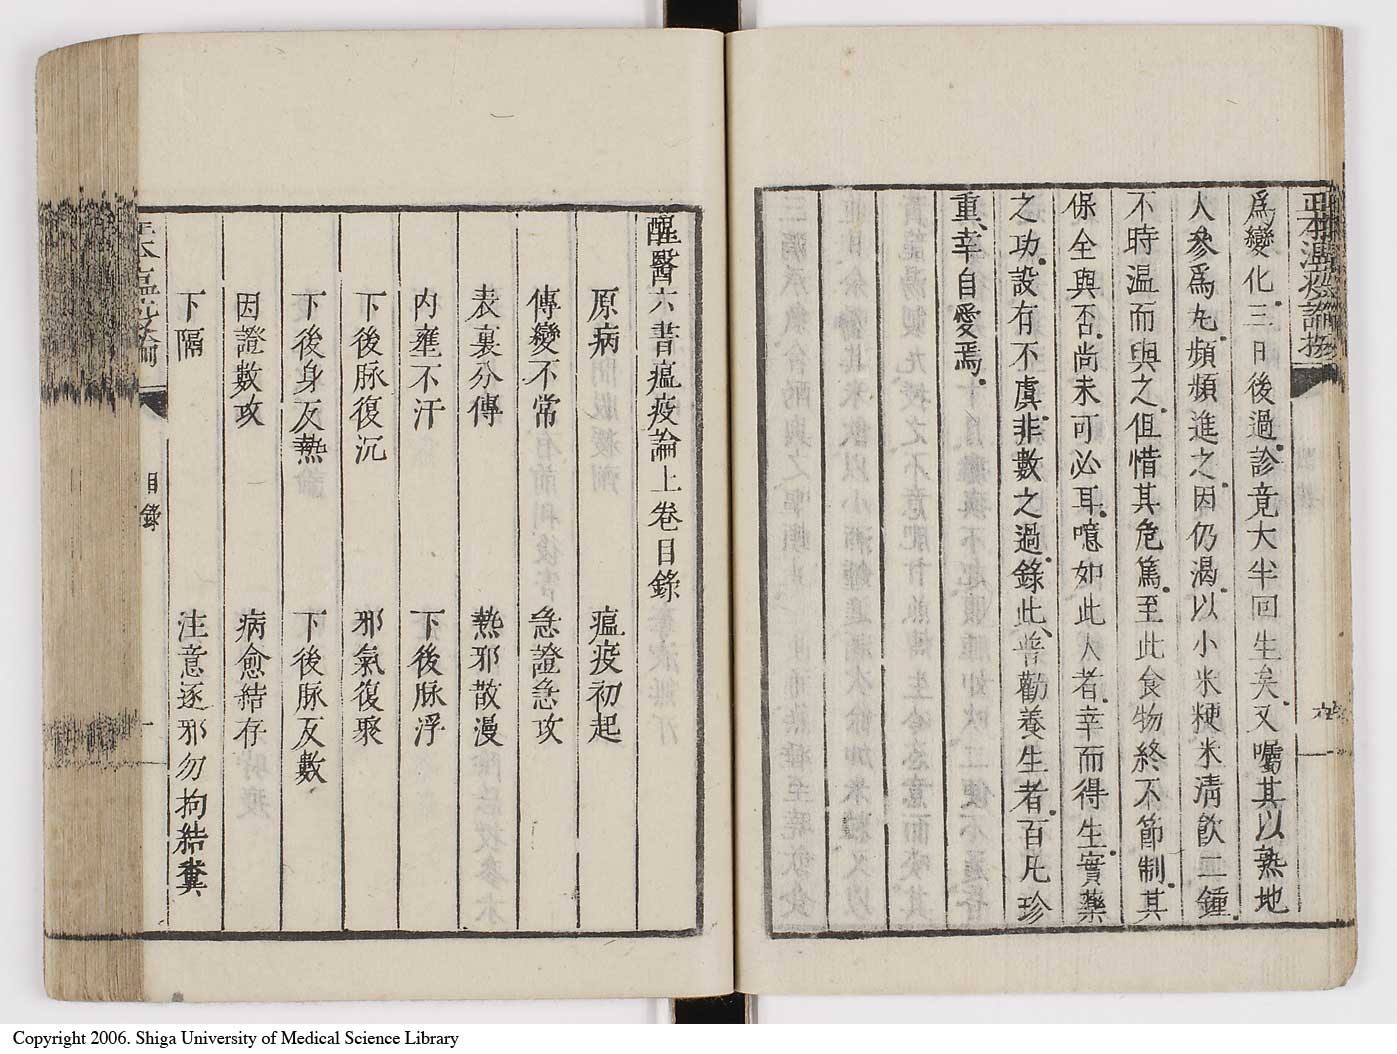 爲變化三日後過診竟大半回生矣又囑其以熟地
人參爲丸頻頻進之因仍渴以小米粳米清飮二鍾
不時温而與之但惜其危篤至此食物終不節制其
保全與否尚未可必耳噫如此人者幸而得生實藥
之功設有不虞非數之過錄此普勸養生者百凡珍
重幸自愛焉
醒醫六書瘟疫論上卷目錄
原病 瘟疫初起
傳變不常 急證急攻
表裏分傳 熱邪散漫
内壅不汗 下後脉浮
下後脉復沉 邪氣復聚
下後身反熱 下後脉反數
因證數攻 病愈結存
下隔 注意逐邪勿拘結糞
目錄
Copyright 2006. Shiga University of Medical Science Library